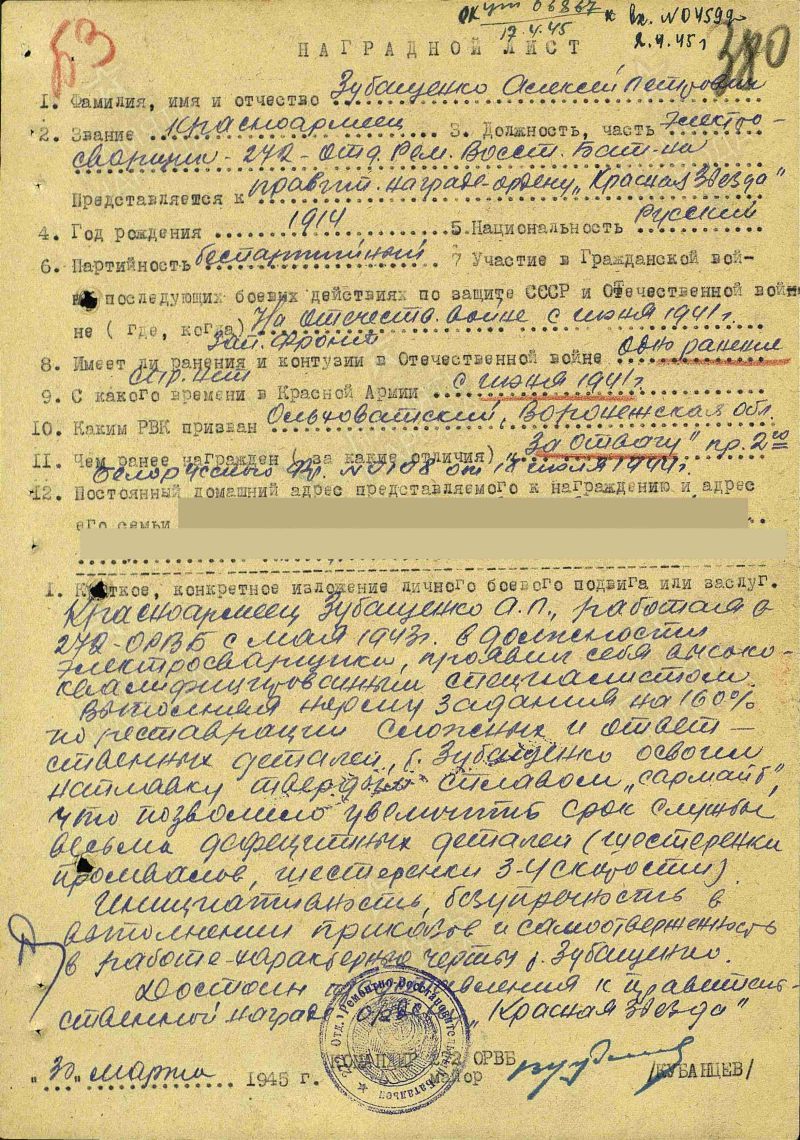 53
вх. №04599
12.4.45
2.4.45г
380
НАГРАДНОЙ ЛИСТ
1. Фамилия, имя и отчество Зубащенко Алексей Петрович
2. Звание Красноармеец 3. Должность, часть Электро-
сварщик - 272 - Отд. Рем. Восст. Бат-на
Представляется к правит. награде-ордену „Красная Звезда"
4. Год рождения 1914 5. Национальность Русский
6. Партийность беспартийный 7 Участие в Гражданской вой-
последующих боевых действиях по защите СССР и Отечественной вой-
не ( где, когда) На отечеств. войне с июня 1941 г.
Зап. Фронт
8. Имеет ли ранения и контузии в Отечественной войне одно ранение
9. С какого времени в Красной Армии с июня 1941г.
10. Каким РВК призван Ольховатский, Воронежская обл.
11. Чем ранее награжден ( за какие отличия) „За отвагу" пр. 2го
Белорусского Фр. №0108 от 18 июля 1944г.
12. Постоянный домашний адрес представляемого к награждению и адрес
его семьи
I. Краткое, конкретное изложение личного боевого подвига или заслуг.
Красноармеец Зубащенко А.П., работая в
272-ОРВБ с мая 1943г. в должности
Электросварщика, проявил себя высоко-
квалифицированным специалистом.
Выполняя норму задания на 160%
по реставрации сложных и ответ-
ственных деталей, т. Зубащенко освоил
наплавку твердым сплавом „сармайт",
что позволило увеличить срок службы
весьма дефицитных деталей (шестеренки
промвалов, шестеренки 3-4 скорости).
Инициативность, безупречность в
выполнении приказов и самоотверженность
в работе-характерные черты т. Зубащенко.
Достоин представления к правитель-
ственной награде „Красная Звезда"
КОМАНДИР 272 ОРВБ
„30" марта 1945 г. майор /КУБАНЦЕВ/
272 Отд. Ремонтно-Восстановительный Батальон